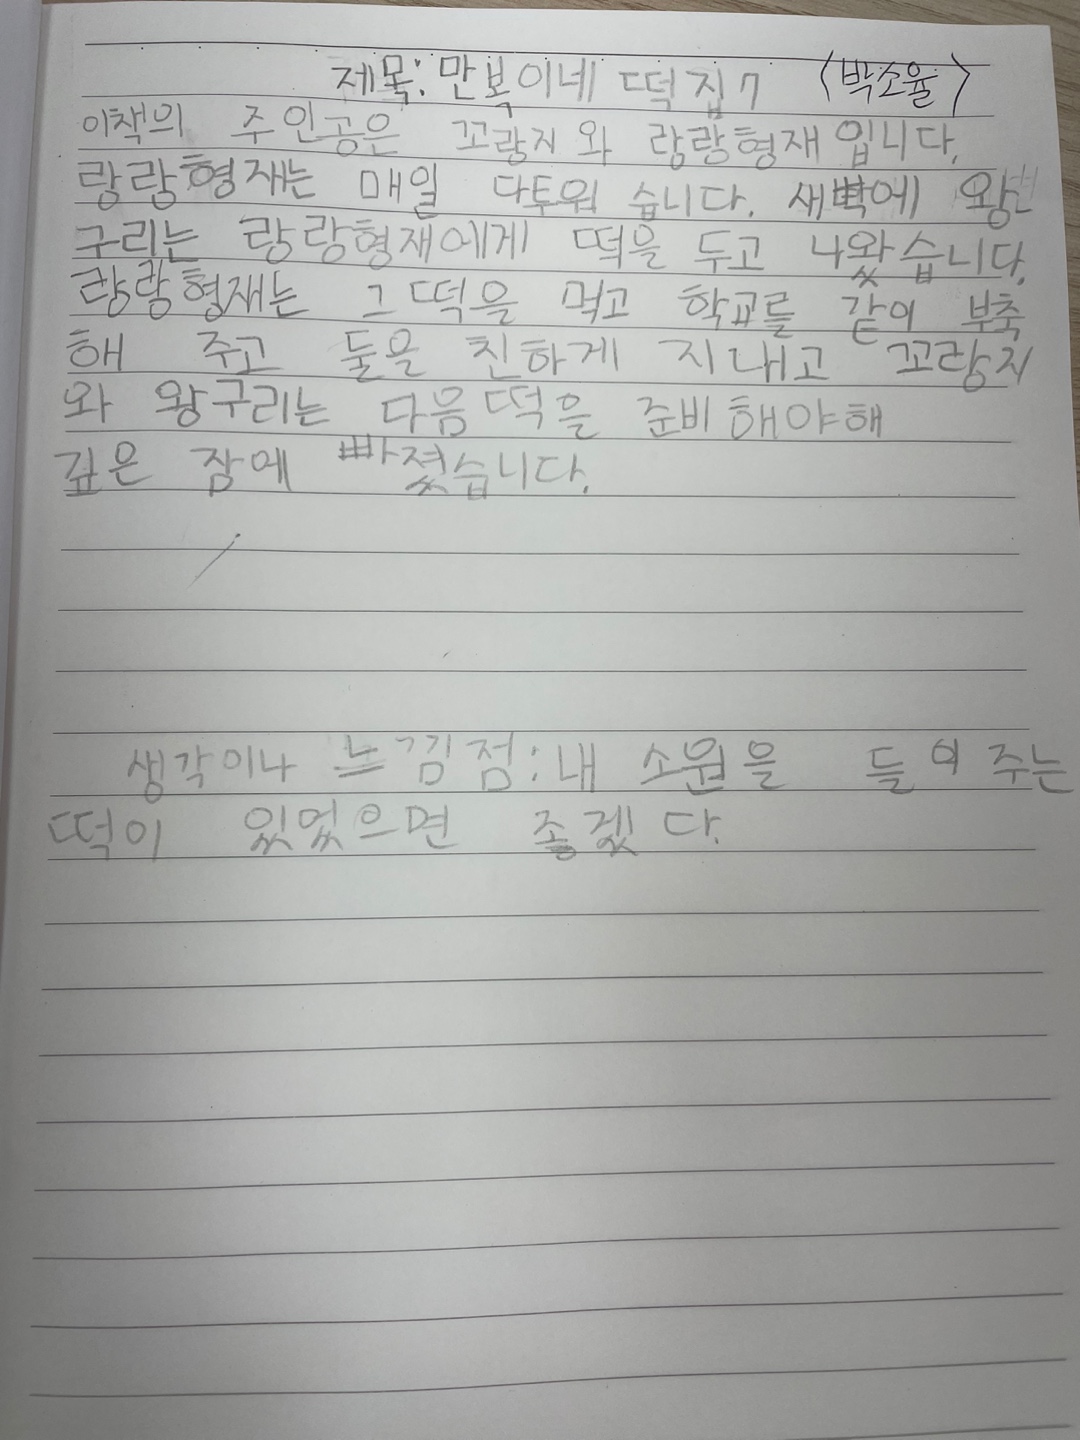 제목: 만복이네 떡집7 〈박소율〉
이책의 주인공은 꼬랑지와 랑랑형재입니다.
랑랑형재는 매일 다투워 습니다. 새벽에 왕
구리는 랑랑형재에게 떡을 두고 나왔습니다.
랑랑형재는 그 떡을 먹고 학교를 같이 부축
해 주고 둘을 친하게 지내고 꼬랑지
와 왕구리는 다음떡을 준비해야해
깊은 잠에 빠젔습니다.
생각이나 느낌점: 내 소원을 들의주는
떡이 있었으면 좋겠다.